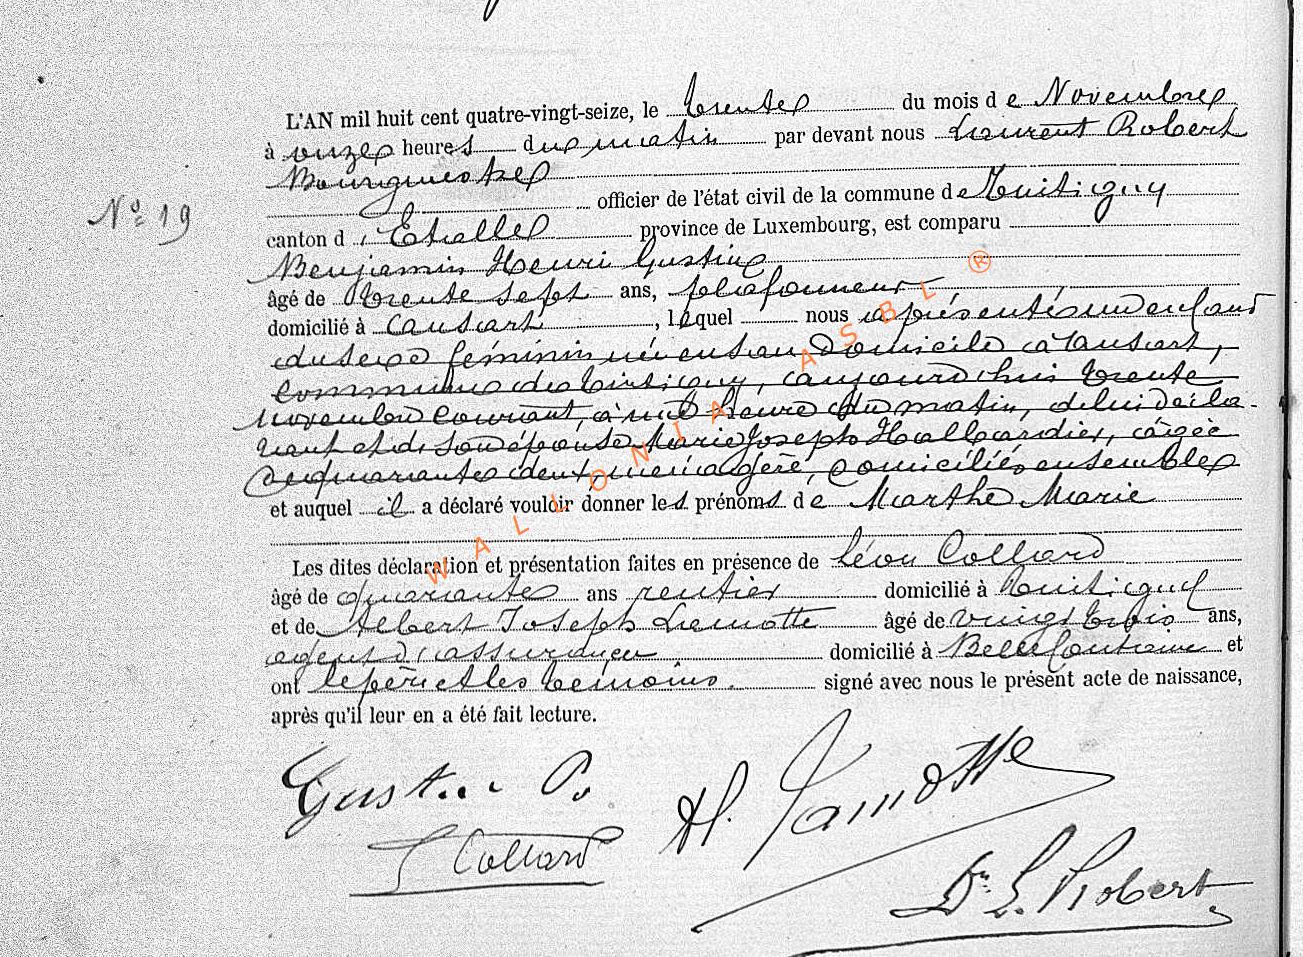 L'AN mil huit cent quatre-vingt-seize, le trente du mois de Novembre
à onze heures du matin par devant nous Laurent Robert
Bourgmestre
officier de l'état civil de la commune de Tintigny
Nº 19
canton d'Etalle province de Luxembourg, est comparu
Benjamin Henri Gustin
âgé de trente sept ans, plafonneur
domicilié à Ansart, lequel nous a présenté un enfant
du sexe féminin né en son domicile à Ansart,
commune de Tintigny, aujourd'hui trente
novembre courant, à une heure du matin, de lui décla-
rant et de son épouse Marie Joseph Hallbardier, âgée
de quarante deux, ménagère, domiciliés ensemble
et auquel il a déclaré vouloir donner les prénoms de Marthe Marie
Les dites déclaration et présentation faites en présence de Léon Collard
âgé de quarante ans rentier domicilié à Tintigny
et de Albert Joseph Lamotte âgé de vingt trois ans,
agent d'assurance domicilié à Bellefontaine et
ont le père et les témoins signé avec nous le présent acte de naissance,
après qu'il leur en a été fait lecture.
WALLONIA ASBL ®
Gustin B.
A. Lamotte
L Collard
Dr L. Robert